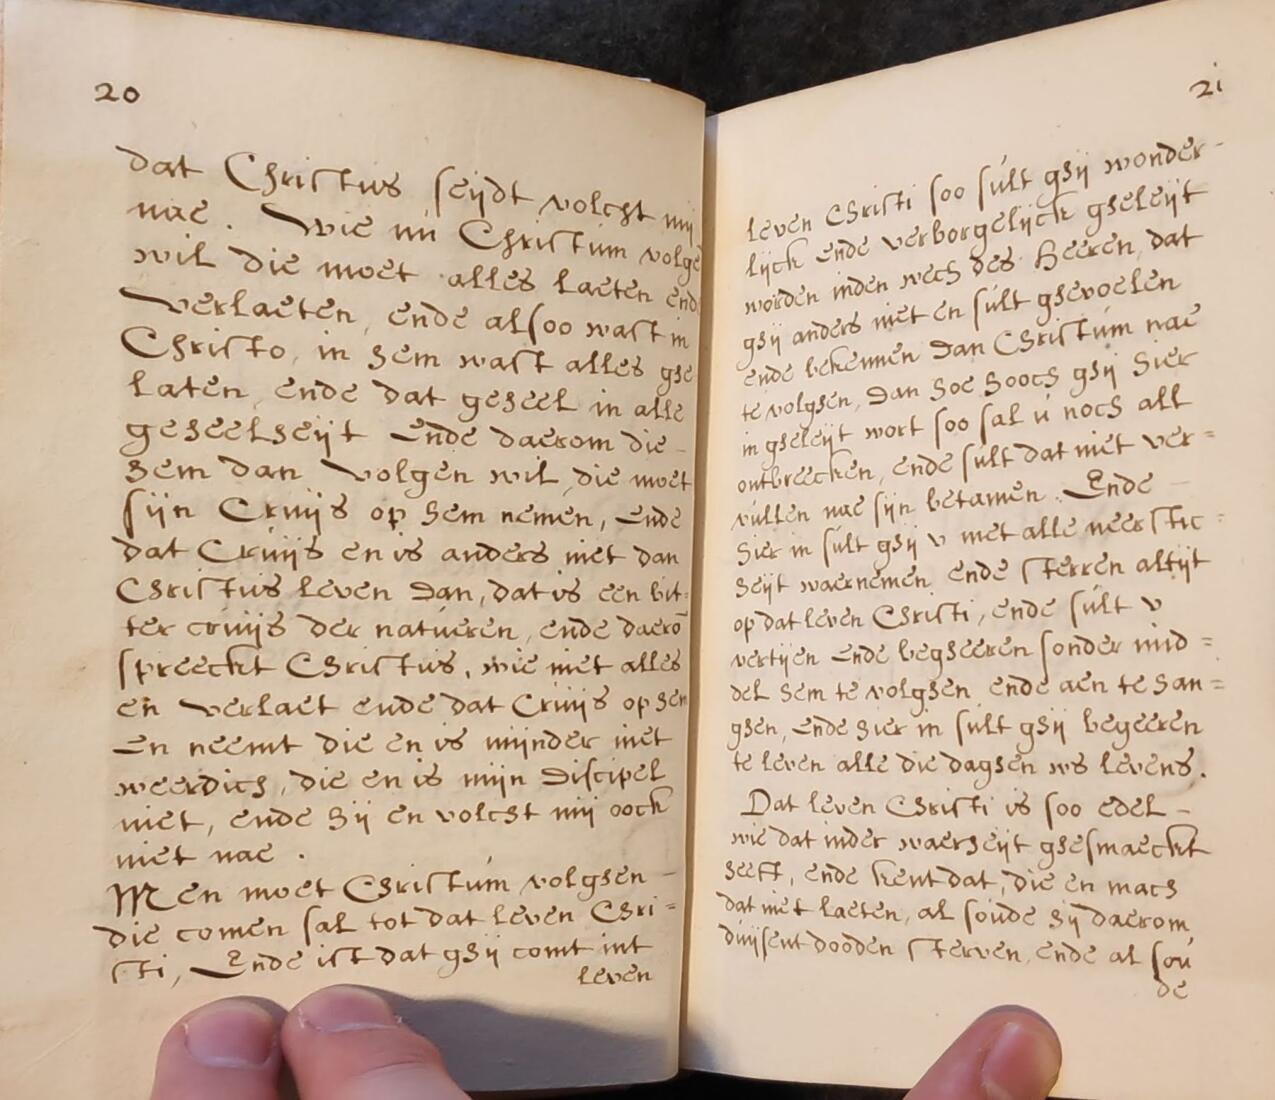 20
dat Christus seijdt volcht mij
nae. Wie nu Christum volge
wil die moet alles laeten ende
verlaeten, ende alsoo wast in
Christo, in hem wast alles ghe
laten, ende dat geheel in alle
geheelheijt Ende daerom die-
hem dan volgen wil, die moet
sijn Cruijs op hem nemen, Ende
dat Cruijs en is anders niet dan
Christus leven Dan, dat is een bit:
ter cruijs der natueren, ende daerō
spreeckt Christus, wie niet alles
en verlaet ende dat Cruijs op hem
En neemt die en is mijnder niet
weerdich, die en is mijn Discipel
niet, ende hij en volcht mij oock
niet nae.
Men moet Christum volghen-
die comen sal tot dat leven Chri=
sti, Ende ist dat ghij comt int
leven
21
leven Christi soo sult ghij wonder-
lijck ende verborgelijck gheleijt
worden inden wech des Heeren, dat
ghij anders niet en sult ghevoelen
ende bekennen Dan Christum nae
te volghen, Dan hoe hooch ghij hier
in gheleijt wort soo sal u noch alt
ontbreecken, ende sult dat niet ver=
vullen nae sijn betamen. Ende-
hier in sult ghij v met alle neerstic=
heijt waernemen ende sterren altijt
op dat leven Christi, ende sult v
vertijen Ende begheeren sonder mid=
del hem te volghen ende aen te han=
ghen, Ende hier in sult ghij begeeren
te leven alle die daghen ws levens.
Dat leven Christi is soo edel-
wie dat inder waerheijt ghesmaeckt
heeft, ende kent dat, die en mach
dat niet laeten, al soude hij daerom
duijsent dooden sterven, ende al sou
de